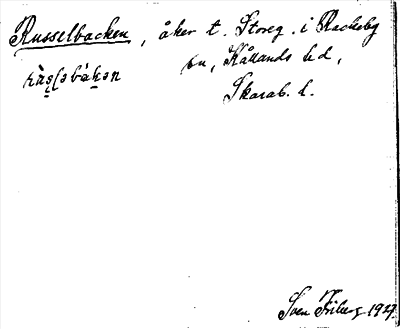 Russelbacken, åker t. Storeg. i Rackeby
sn, Kållands hd,
Skarab. l.
Sven Friberg 1927